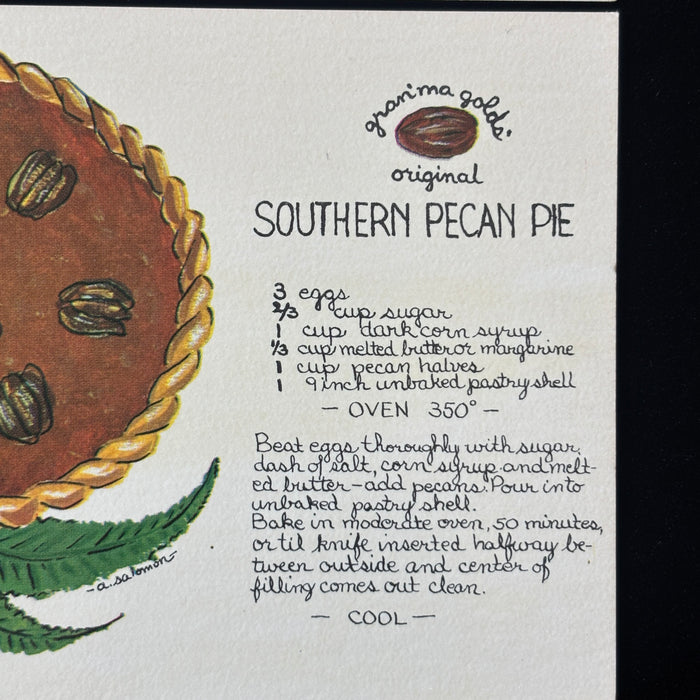 gran'ma golds'
original
SOUTHERN PECAN PIE
3 eggs
2/3 cup sugar
1 cup dark corn syrup
1/3 cup melted butter or margarine
1 cup pecan halves
1 9 inch unbaked pastry shell
— OVEN 350° —
Beat eggs thoroughly with sugar,
dash of salt, corn syrup and melt-
ed butter—add pecans. Pour into
unbaked pastry shell.
Bake in moderate oven, 50 minutes,
or til knife inserted halfway be-
tween outside and center of
filling comes out clean.
— COOL —
-a. salomon-